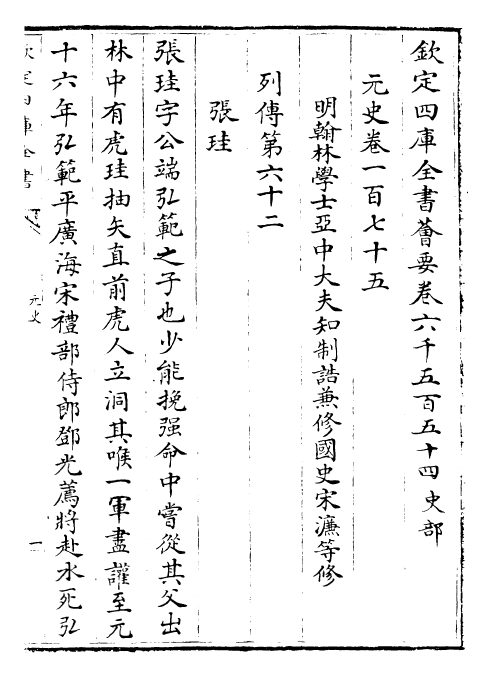 欽定四庫全書薈要卷六千五百五十四史部
元史卷一百七十五
明翰林學士亞中大夫知制誥兼修國史宋濂等修
列傳第六十二
張珪
張珪字公端弘範之子也少能挽强命中嘗從其父出
林中有虎珪抽矢直前虎人立洞其喉一軍盡讙至元
十六年弘範平廣海宋禮部侍郎鄧光薦將赴水死弘
欽定四庫全書
元史
一